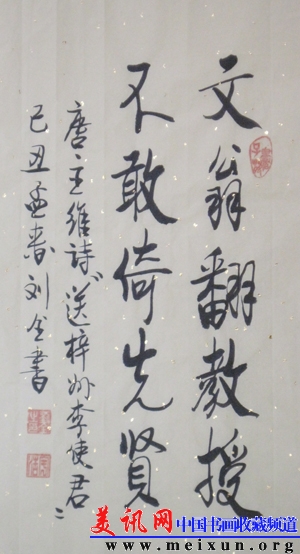 文翁翻教授
不敢倚先贤
唐王维诗"送梓州李使君"
己丑孟春刘金书
美讯网 中国书画收藏频道
www.meixun.org